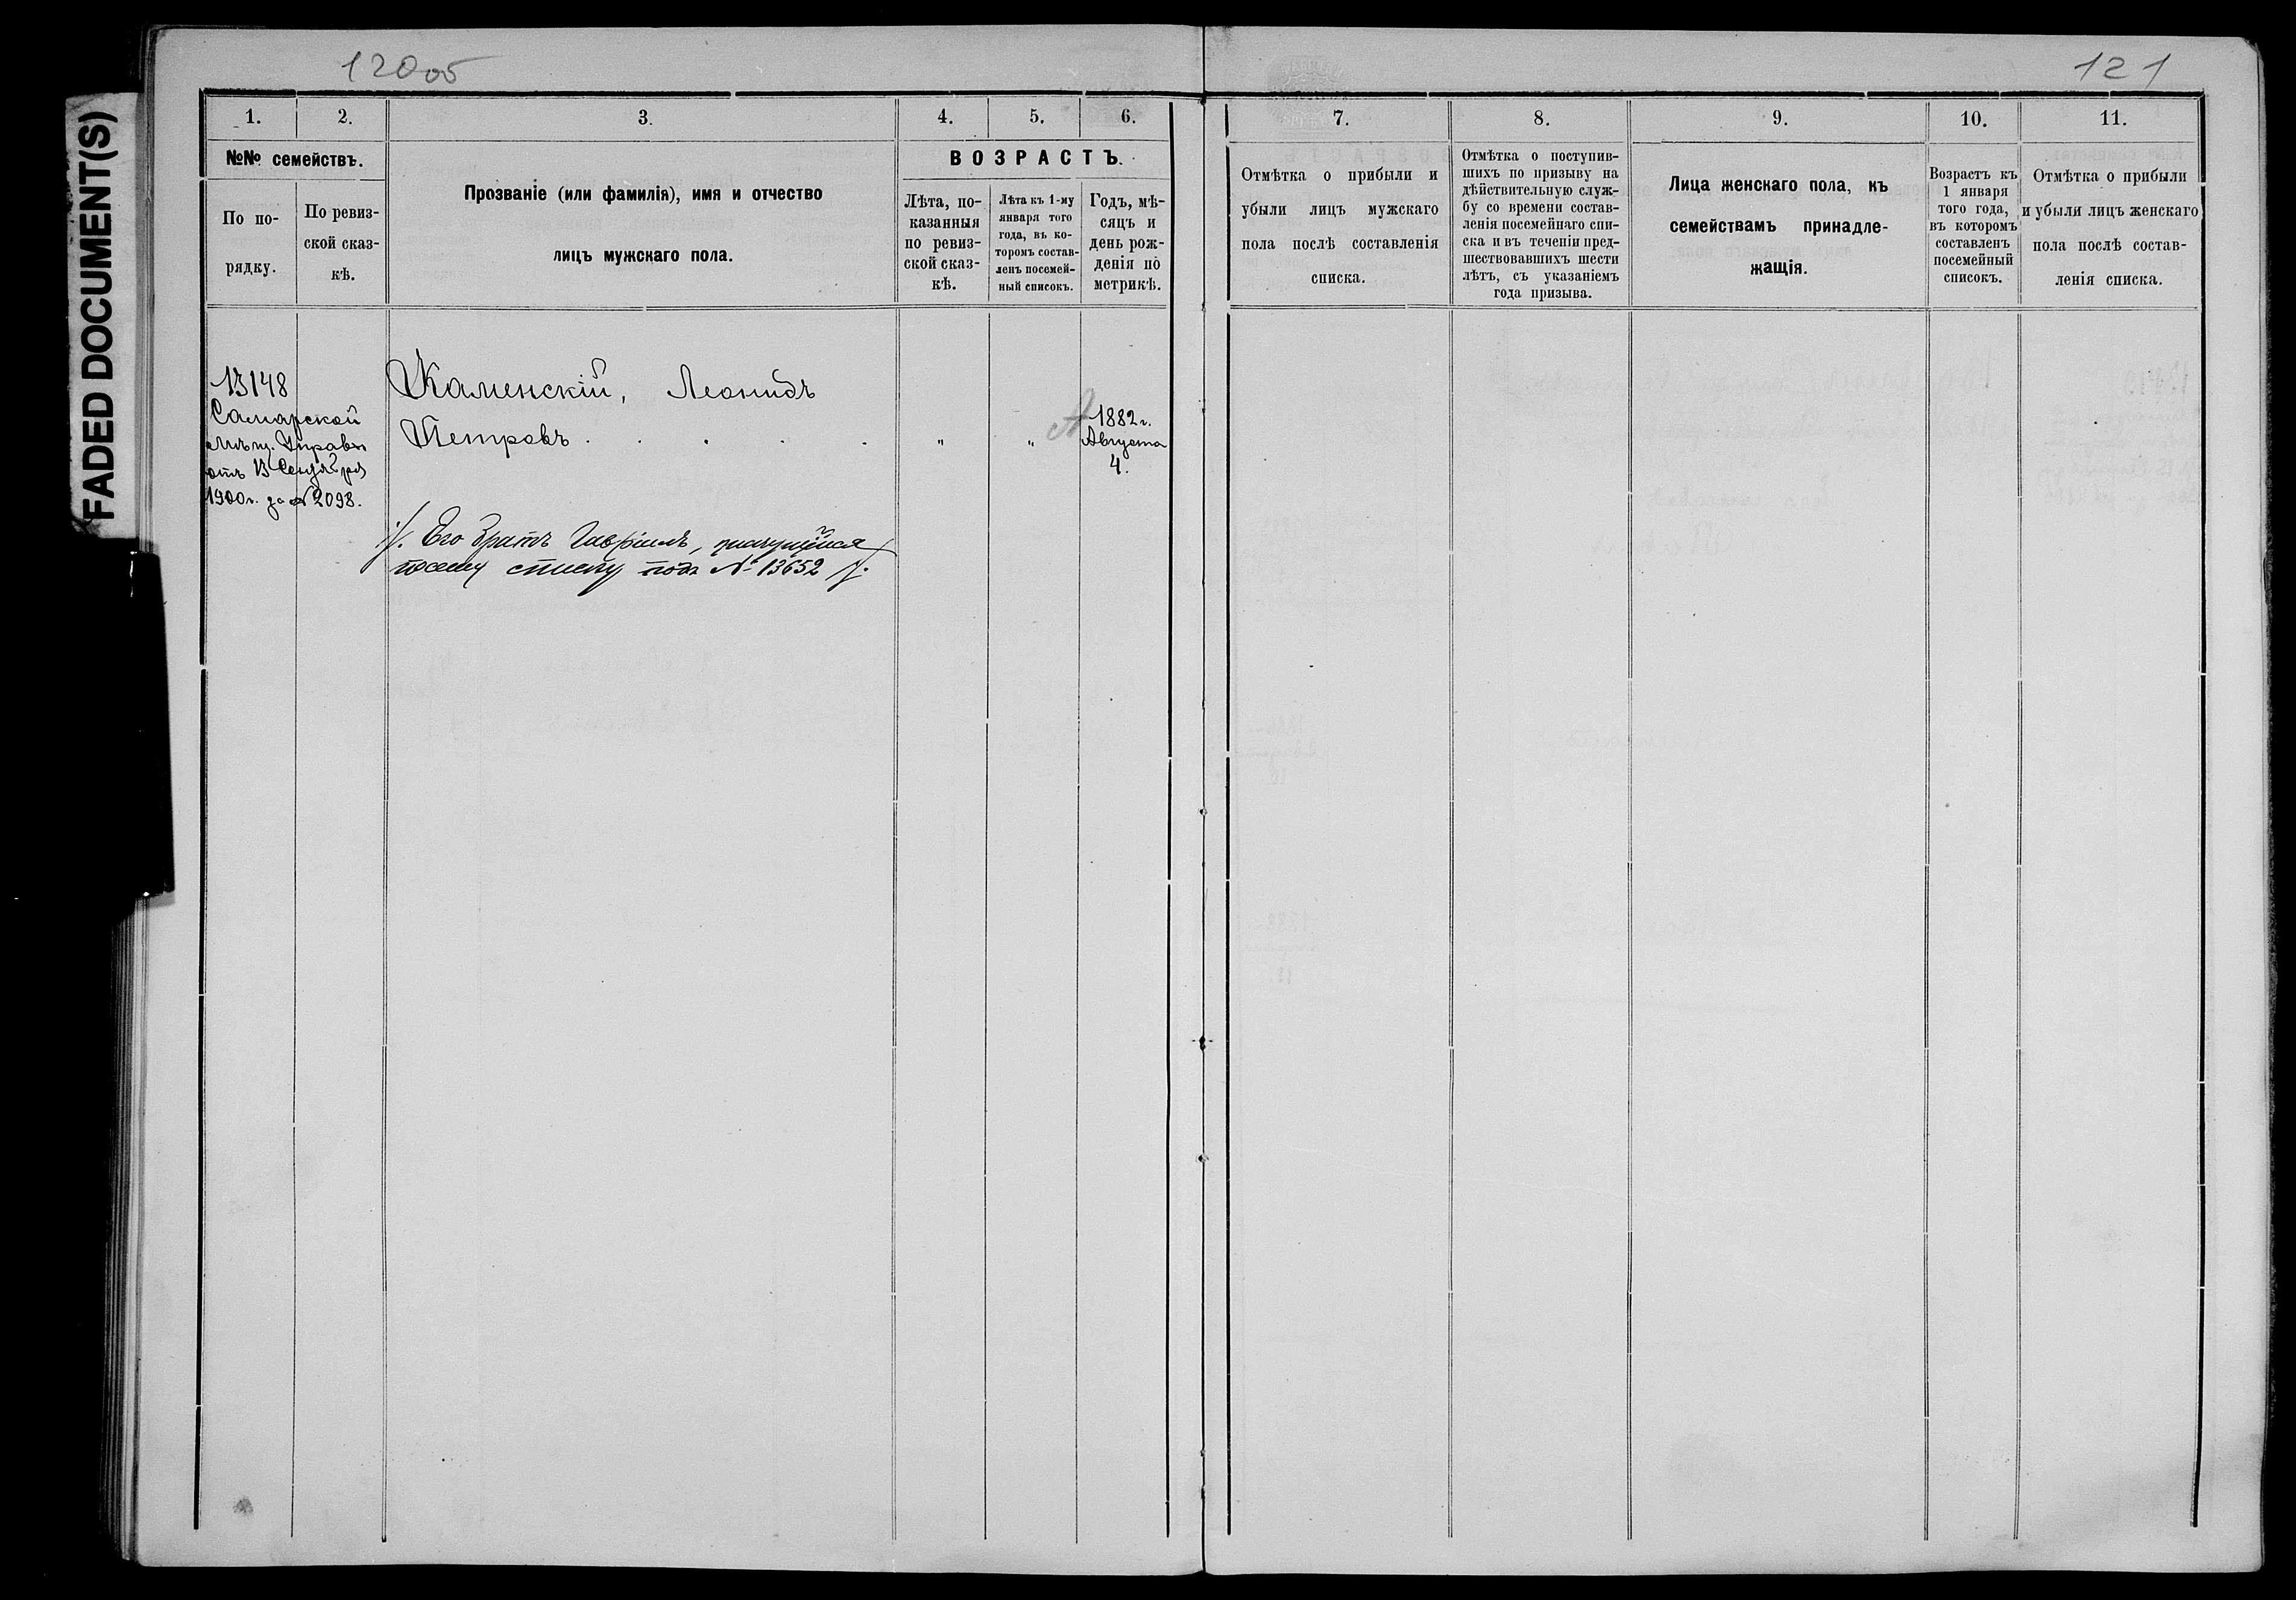 FADED DOCUMENT(S)
120об
121
1.
2.
3.
4.
5.
6.
№№ семействъ.
По по-
рядку.
По ревиз-
ской сказ-
кѣ.
Прозваніе (или фамилія), имя и отчество
лицъ мужскаго пола.
ВОЗРАСТЪ.
Лѣта, по-
казанныя
по ревиз-
ской сказ-
кѣ.
Лѣта къ 1-му
января того
года, въ ко-
торомъ состав-
ленъ посемей-
ный списокъ.
Годъ, мѣ-
сяцъ и
день рож-
денія по
метрикѣ.
13148
Самарской
мѣщ. Управы
отъ 13 Сентября
1900 г. за № 2098.
Каменскій, Леонидъ
Петровъ . . . . . " "
1882 г.
Августа
4.
Его братъ Гавріилъ, значущійся
по сему списку подъ № 13652
7.
8.
9.
10.
11.
Отмѣтка о прибыли и
убыли лицъ мужскаго
пола послѣ составленія
списка.
Отмѣтка о поступив-
шихъ по призыву на
дѣйствительную служ-
бу со времени состав-
ленія посемейнаго спи-
ска и въ теченіи пред-
шествовавшихъ шести
лѣтъ, съ указаніемъ
года призыва.
Лица женскаго пола, къ
семействамъ принадле-
жащія.
Возрастъ къ
1 января
того года,
въ которомъ
составленъ
посемейный
списокъ.
Отмѣтка о прибыли
и убыли лицъ женскаго
пола послѣ состав-
ленія списка.